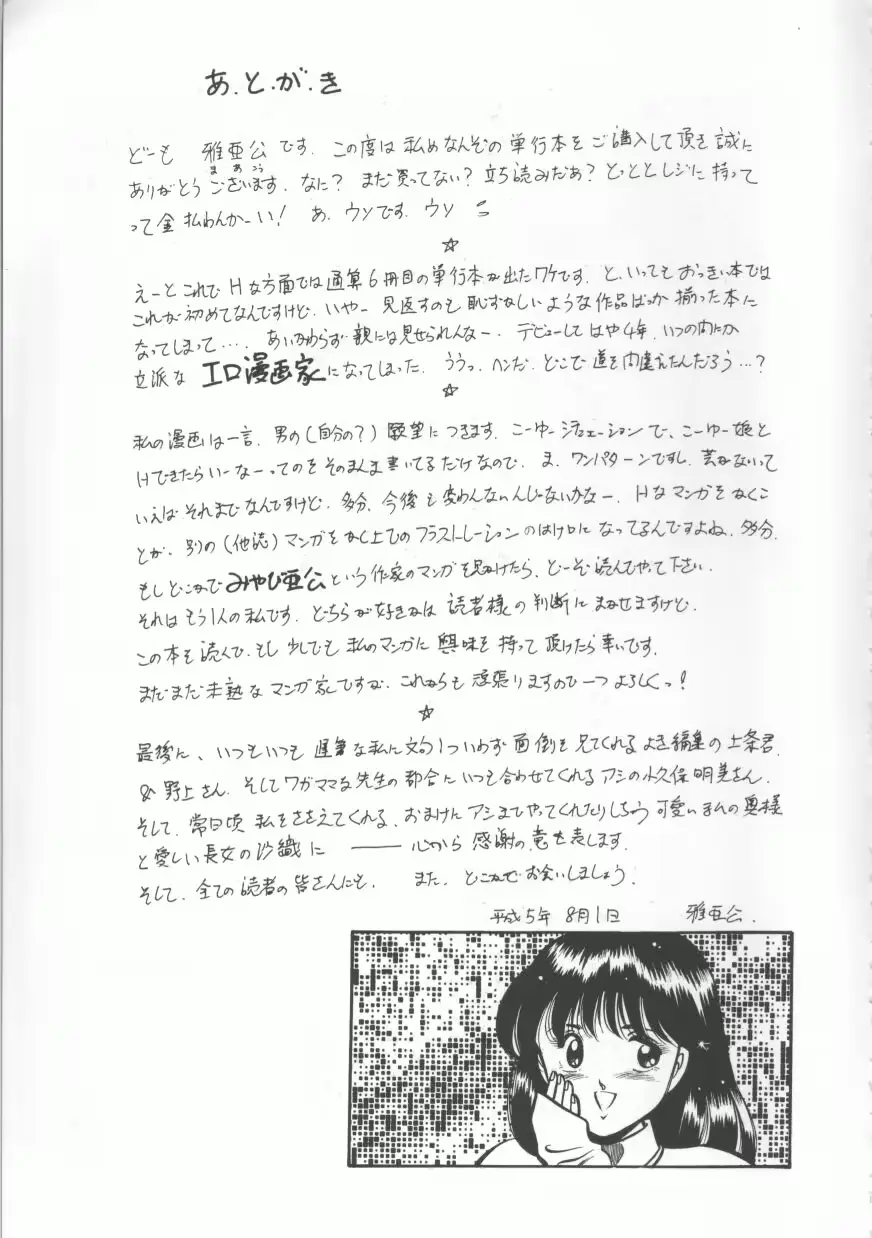 あ.と.が.き
どーも 雅亜公です. この度は私めなんぞの単行本をご購入して頂き誠に
まあこう
ありがとうございます. なに? まだ買ってない? 立ち読みだあ? とっととレジに持って
って金払わんかーい! あ. ウソです. ウソ
☆
えーとこれでHな方面では通算6冊目の単行本が出たワケです. と.いってもおっきい本では
これが初めてなんですけど. いやー 見返すのも恥ずかしいような作品ばっか揃った本に
なってしまって…. あいかわらず親には見せられんなー. デビューしてはや4年. いつの間にか
立派なエロ漫画家になってしまった. ううっ. ヘンだ. どこで道を間違えたんだろう…?
☆
私の漫画は一言. 男の(自分の?)願望につきます. こーゆーシチュエーションで、こーゆー娘と
Hできたらいーなーってのをそのまんま書いてるだけなので. ま. ワンパターンですし. 芸がないって
いえばそれまでなんですけど. 多分. 今後も変わんないんじゃないかなー. Hなマンガをかくこ
とが. 別の(他誌)マンガをかく上でのフラストレーションのはけ口になってるんですよね. 多分.
もしどこかでみやび亜公という作家のマンガを見かけたら、どーぞ読んでやって下さい.
それはもう1人の私です. どちらが好きかは 読者様の判断にまかせますけど.
この本を読んで. もし少しでも私のマンガに興味を持って頂けたら幸いです.
まだまだ未熟なマンガ家ですが. これからも頑張りますので一つよろしくっ!
☆
最後に、いつもいつも遅筆な私に文句1ついわず面倒を見てくれるよき編集の上条君.
& 野上さん. そしてワガママな先生の都合にいつも合わせてくれるアシの久保明美さん.
そして. 常日頃私をささえてくれる. おまけにアシまでやってくれたりしちゃう可愛いまんの奥様
と愛しい長女の沙織に ―― 心から感謝の意を表します.
そして. 全ての読者の皆さんにも. また. どこかでお会いしましょう.
平成5年 8月1日 雅亜公.